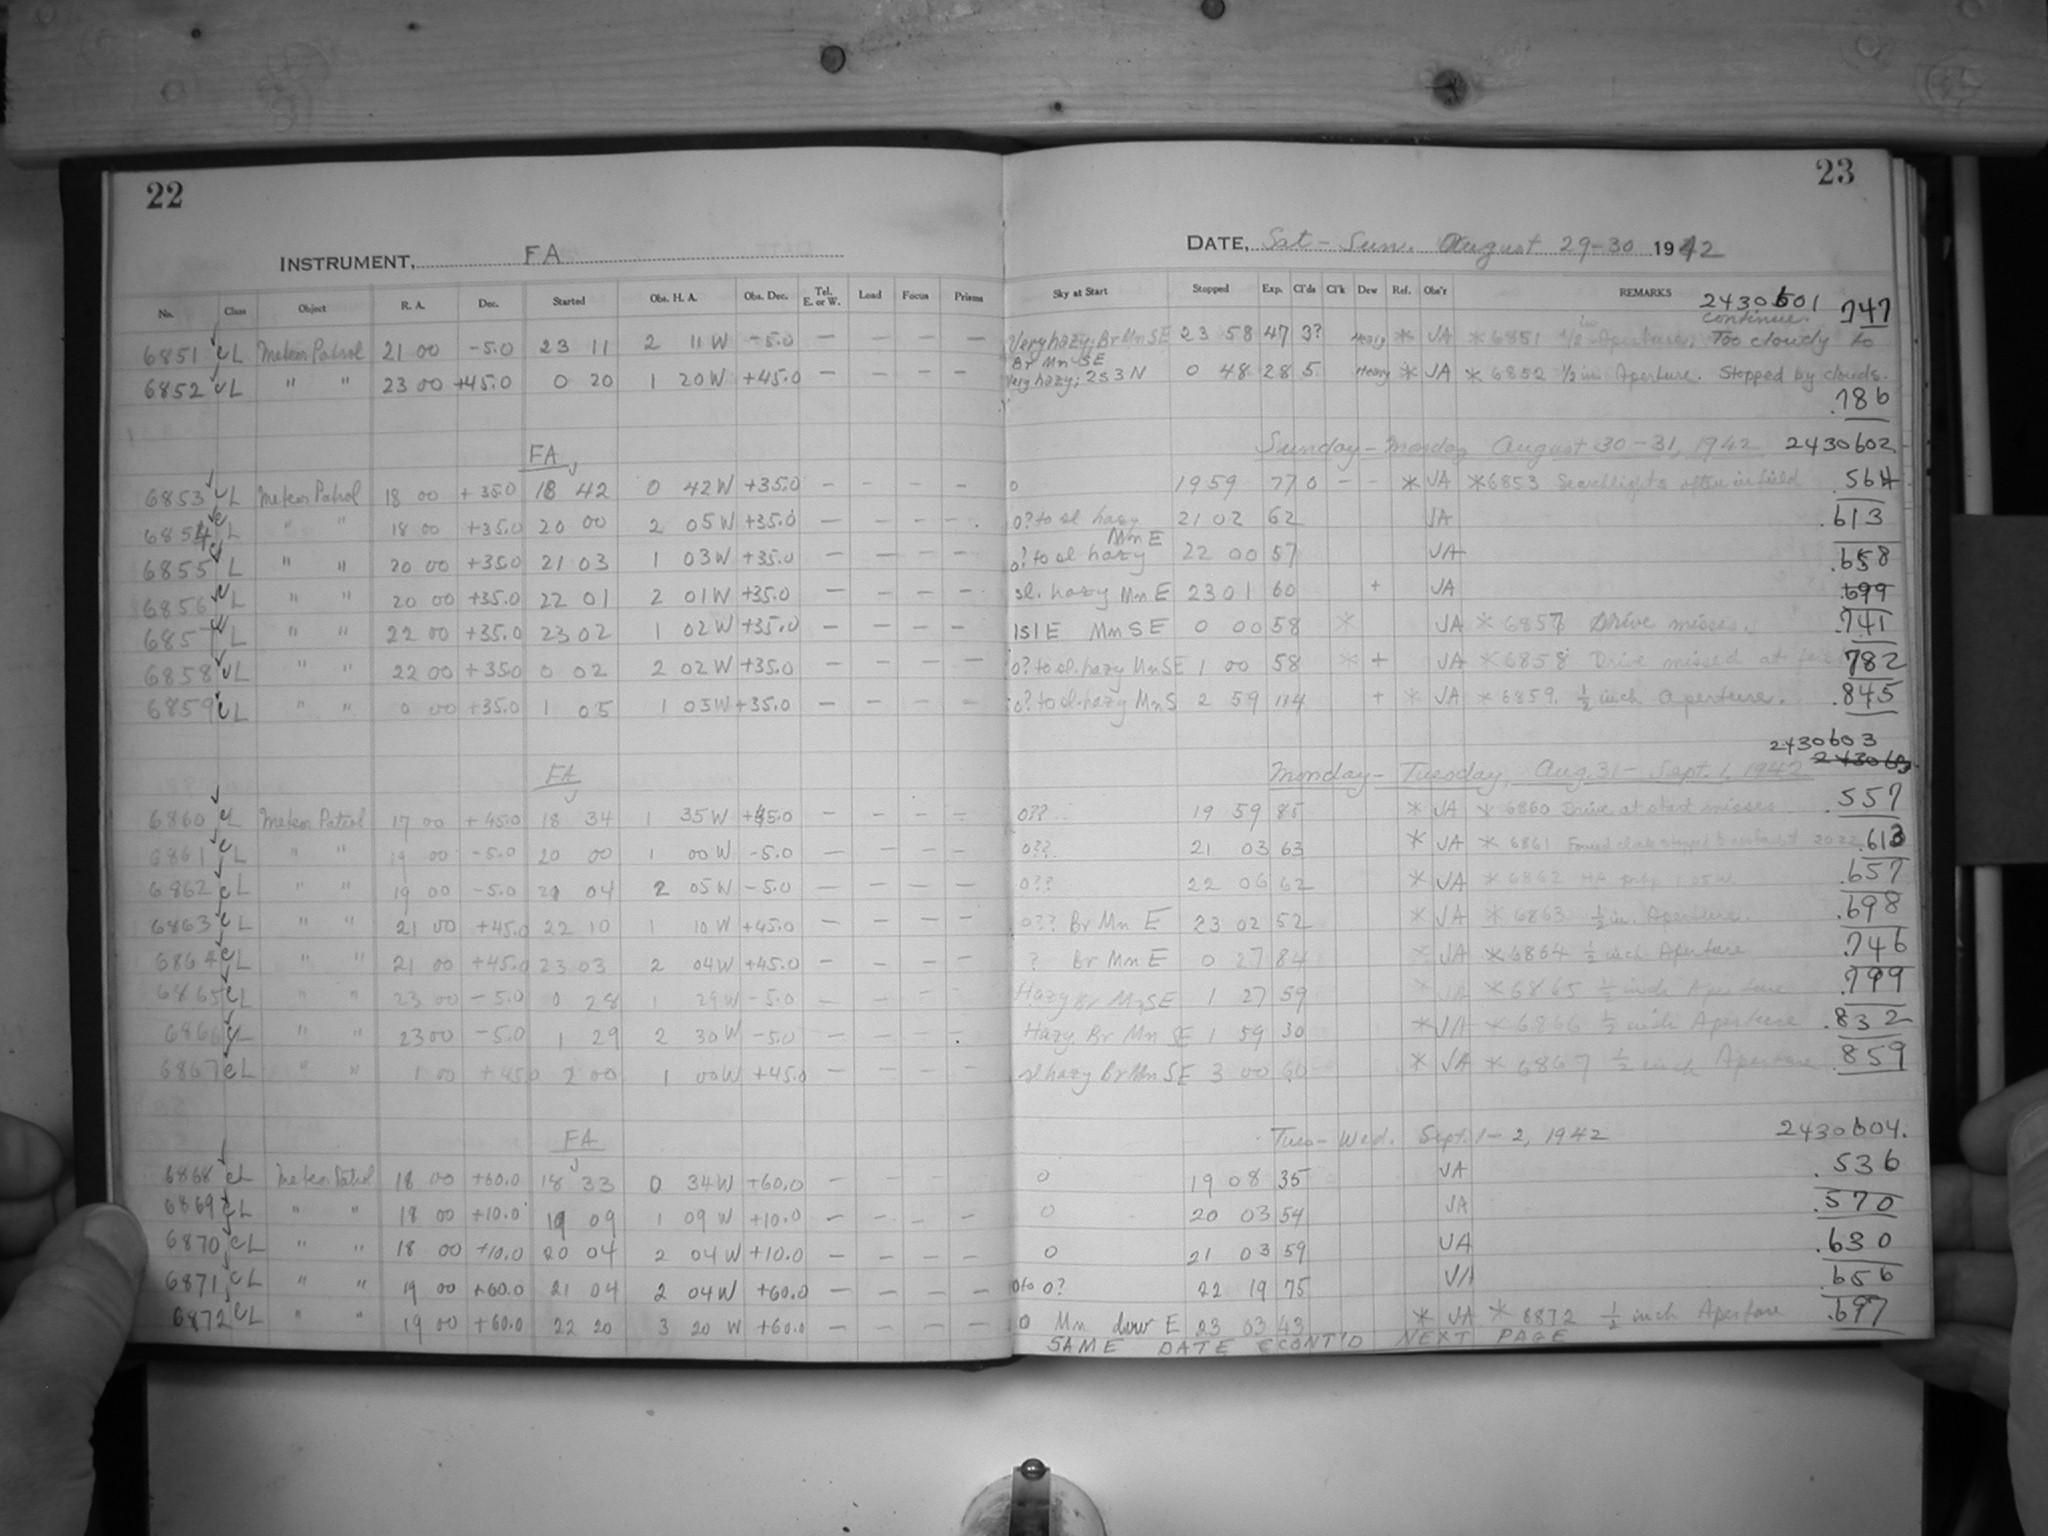 22
23
INSTRUMENT, FA
DATE, Sat - Sun. August 29-30 1942
No. Class Object R. A. Dec. Started Obs. H. A. Obs. Dec. Tel. E. or W. Load Focus Prisms Sky at Start Stopped Exp. Cl'ds Cl'k Dew Ref. Obs'r REMARKS 2430601 .747
continue.
6851 cL Meteor Patrol 21 00 -5.0 23 11 2 11 W -5.0 — — — — Very hazy; Br Mn SE 23 58 47 3? Heavy * JA * 6851 1/2 in Aperture. Too cloudy to
Br Mn SE
6852 cL " " 23 00 +45.0 0 20 1 20 W +45.0 — — — — Very hazy; 2S3N 0 48 28 5 Heavy * JA * 6852 1/2 in Aperture. Stopped by clouds.
.786
FA Sunday - Monday August 30-31, 1942 2430602
6853 cL Meteor Patrol 18 00 +35.0 18 42 0 42 W +35.0 — — — — 0 19 59 77 0 — — * JA *6853 Searchlights often in field .564
6854 cL " " 18 00 +35.0 20 00 2 05 W +35.0 — — — — 0? to sl hazy 21 02 62 JA .613
Mn E
6855 cL " " 20 00 +35.0 21 03 1 03 W +35.0 — — — — 0? to sl hazy 22 00 57 JA .658
6856 cL " " 20 00 +35.0 22 01 2 01 W +35.0 — — — — sl. hazy Mn E 23 01 60 + JA .699
6857 cL " " 22 00 +35.0 23 02 1 02 W +35.0 — — — — 1S1E Mn SE 0 00 58 * JA * 6857 Drive misses. .741
6858 cL " " 22 00 +35.0 0 02 2 02 W +35.0 — — — — 0? to sl. hazy Mn SE 1 00 58 * + JA * 6858 Drive missed at 782
6859 cL " " 0 00 +35.0 1 05 1 05 W +35.0 — — — — 0? to sl. hazy Mn S 2 59 114 + * JA * 6859. 1/2 inch aperture. .845
2430603
FA Monday - Tuesday, Aug. 31 - Sept. 1, 1942
6860 cL Meteor Patrol 17 00 +45.0 18 34 1 35 W +45.0 — — — — 0?? 19 59 85 * JA * 6860 Drive at start misses .557
6861 cL " " 19 00 -5.0 20 00 1 00 W -5.0 — — — — 0?? 21 03 63 * JA * 6861 Found clock stopped .613
6862 cL " " 19 00 -5.0 21 04 2 05 W -5.0 — — — — 0?? 22 06 62 * JA * 6862 HA .657
6863 cL " " 21 00 +45.0 22 10 1 10 W +45.0 — — — — 0?? Br Mn E 23 02 52 * JA * 6863 1/2 in. Aperture. .698
6864 cL " " 21 00 +45.0 23 03 2 04 W +45.0 — — — — ? Br Mn E 0 27 84 * JA * 6864 1/2 inch Aperture .746
6865 cL " " 23 00 -5.0 0 28 1 29 W -5.0 — — — — Hazy Br Mn SE 1 27 59 * JA * 6865 1/2 inch Aperture .799
6866 cL " " 23 00 -5.0 1 29 2 30 W -5.0 — — — — Hazy Br Mn SE 1 59 30 * JA * 6866 1/2 inch Aperture .832
6867 cL " " 1 00 +45.0 2 00 1 00 W +45.0 — — — — sl hazy Br Mn SE 3 00 60 * JA * 6867 1/2 inch Aperture .859
FA Tues - Wed. Sept. 1-2, 1942 2430604.
6868 cL Meteor Patrol 18 00 +60.0 18 33 0 34 W +60.0 — — — — 0 19 08 35 JA .536
6869 cL " " 18 00 +10.0 19 09 1 09 W +10.0 — — — — 0 20 03 54 JA .570
6870 cL " " 18 00 +10.0 20 04 2 04 W +10.0 — — — — 0 21 03 59 JA .630
6871 cL " " 19 00 +60.0 21 04 2 04 W +60.0 — — — — 0 to 0? 22 19 75 JA .656
6872 cL " " 19 00 +60.0 22 20 3 20 W +60.0 — — — — 0 Mn low E 23 03 43 * JA * 6872 1/2 inch Aperture .697
SAME DATE CONT'D NEXT PAGE